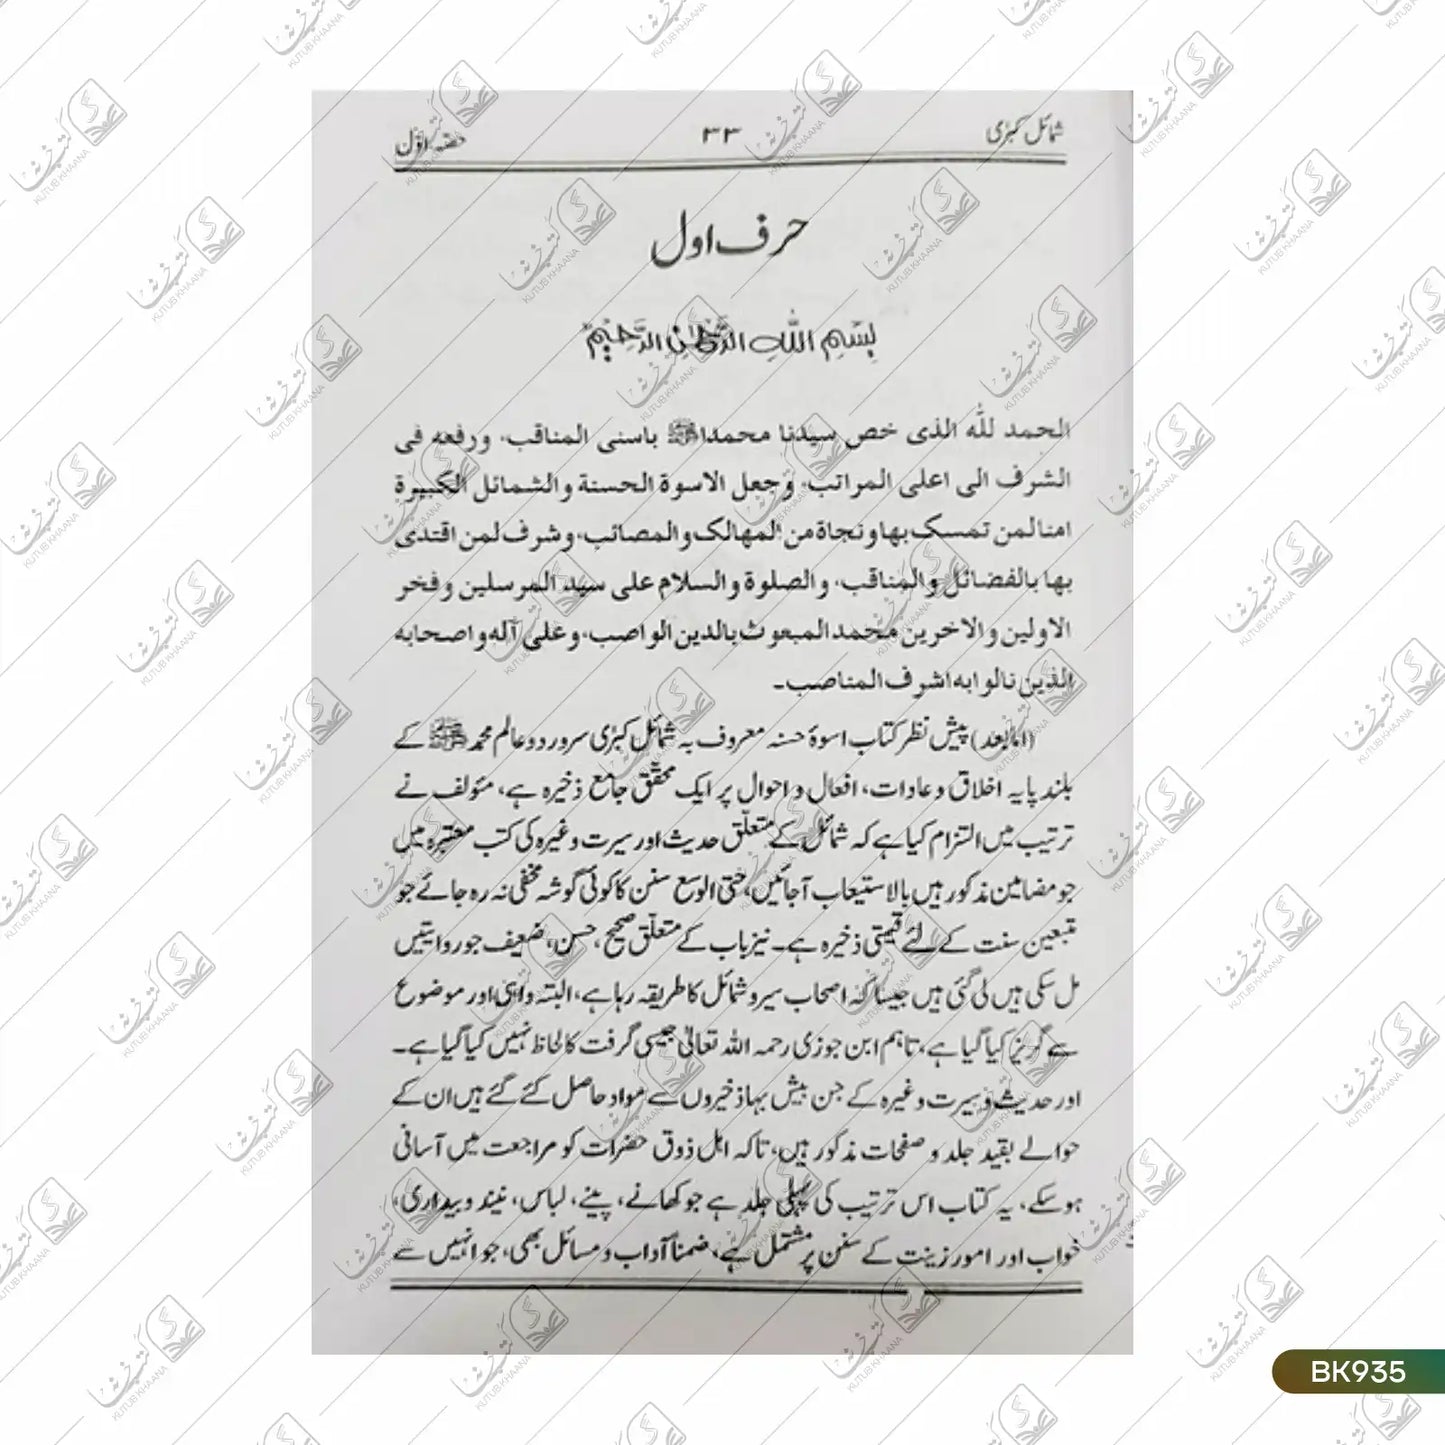 شمائل کبریٰ
۳۳
حصہ اوّل
حرف اول
بِسْمِ اللهِ الرَّحْمٰنِ الرَّحِيْمِ
الحمد لله الذی خص سیدنا محمدا ﷺ باسنی المناقب، ورفعه فی
الشرف الی اعلی المراتب، وجعل الاسوة الحسنة والشمائل الکبیرة
امنا لمن تمسک بها ونجاة من المهالک والمصائب، وشرف لمن اقتدی
بها بالفضائل والمناقب، والصلوة والسلام علی سید المرسلین وفخر
الاولین والاخرین محمد المبعوث بالدین الواصب، وعلی آله واصحابه
الذین نالوا به اشرف المناصب۔
(اما بعد) پیش نظر کتاب اسوۂ حسنہ معروف بہ شمائل کبریٰ سرور دو عالم محمد ﷺ کے
بلند پایہ اخلاق و عادات، افعال و احوال پر ایک محقّق جامع ذخیرہ ہے، مؤلف نے
ترتیب میں التزام کیا ہے کہ شمائل کے متعلّق حدیث اور سیرت وغیرہ کی کتب معتبرہ میں
جو مضامین مذکور ہیں بالاستیعاب آجائیں، حتی الوسع سنن کا کوئی گوشہ مخفی نہ رہ جائے جو
متبعین سنت کے لئے قیمتی ذخیرہ ہے۔ نیز باب کے متعلّق صحیح، حسن، ضعیف جو روایتیں
مل سکی ہیں لی گئی ہیں جیسا کہ اصحاب سیر و شمائل کا طریقہ رہا ہے، البتہ واہی اور موضوع
سے گریز کیا گیا ہے، تاہم ابن جوزی رحمہ اللہ تعالیٰ جیسی گرفت کا لحاظ نہیں کیا گیا ہے۔
اور حدیث و سیرت وغیرہ کے جن بیش بہا ذخیروں سے مواد حاصل کئے گئے ہیں ان کے
حوالے بقید جلد و صفحات مذکور ہیں، تاکہ اہل ذوق حضرات کو مراجعت میں آسانی
ہو سکے، یہ کتاب اس ترتیب کی پہلی جلد ہے جو کھانے، پینے، لباس، نیند و بیداری،
خواب اور امور زینت کے سنن پر مشتمل ہے، ضمناً آداب و مسائل بھی، جو انہیں سے
BK935
کتب خانہ
KUTUB KHAANA